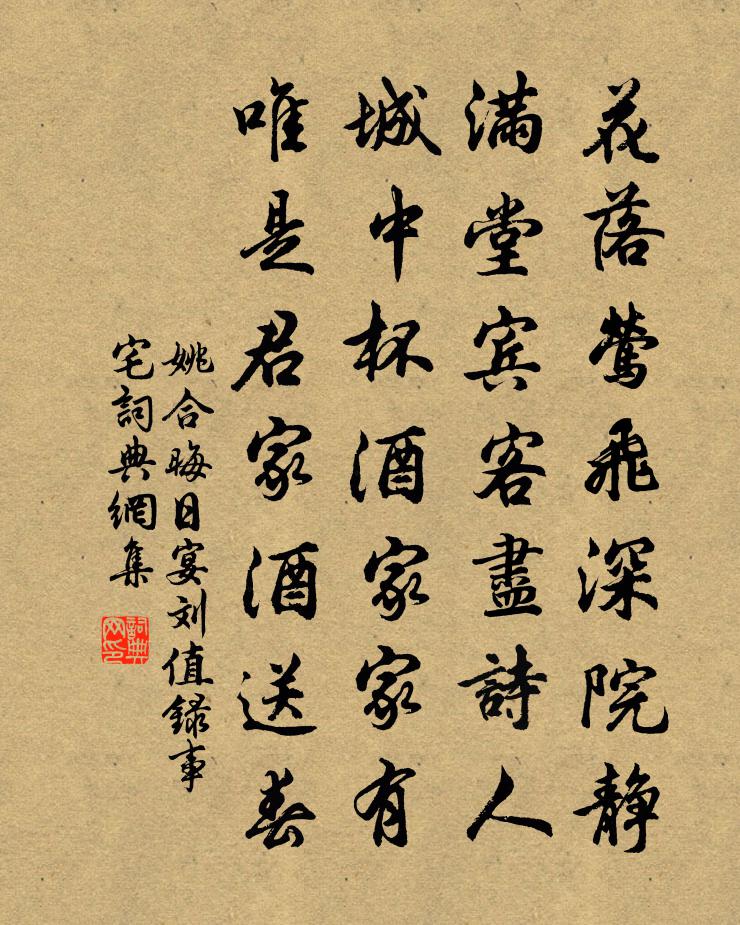 花落莺飛深院静
滿堂宾客盡詩人
城中杯酒家家有
唯是君家酒送春
姚合晦日宴刘值録事
宅詞典網集
詞典网印